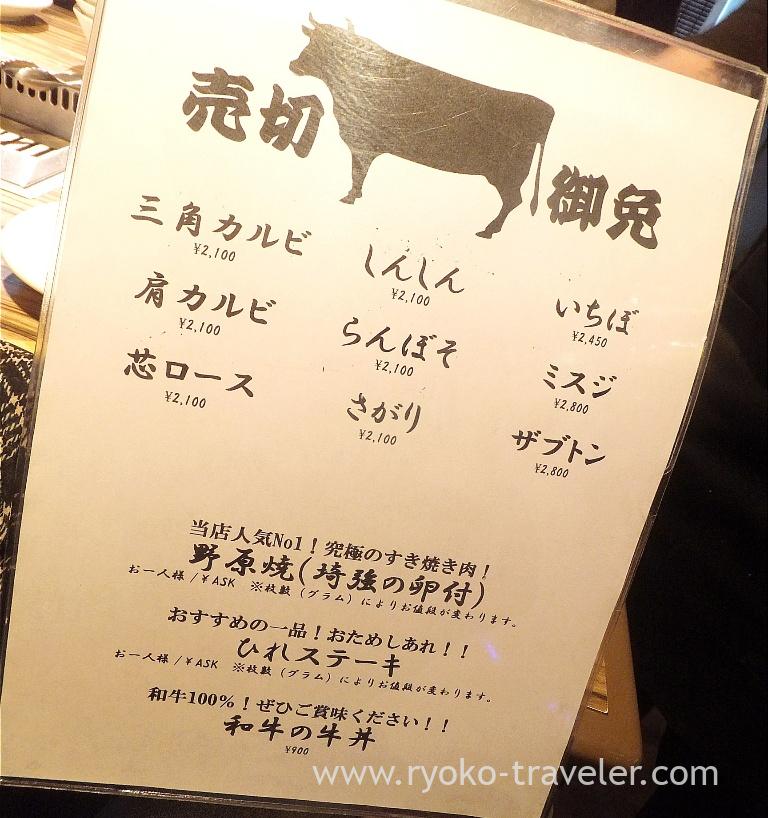 売切
御免
三角カルビ
¥2,100
肩カルビ
¥2,100
芯ロース
¥2,100
しんしん
¥2,100
らんぼそ
¥2,100
さがり
¥2,100
いちぼ
¥2,450
ミスジ
¥2,800
ザブトン
¥2,800
当店人気No1！究極のすき焼き肉！
野原焼(埼強の卵付)
お一人様/¥ASK ※枚数（グラム）によりお値段が変わります。
おすすめの一品！おためしあれ！！
ひれステーキ
お一人様/¥ASK ※枚数（グラム）によりお値段が変わります。
和牛100%！ぜひご賞味ください！！
和牛の牛丼
¥900
www.ryoko-traveler.com